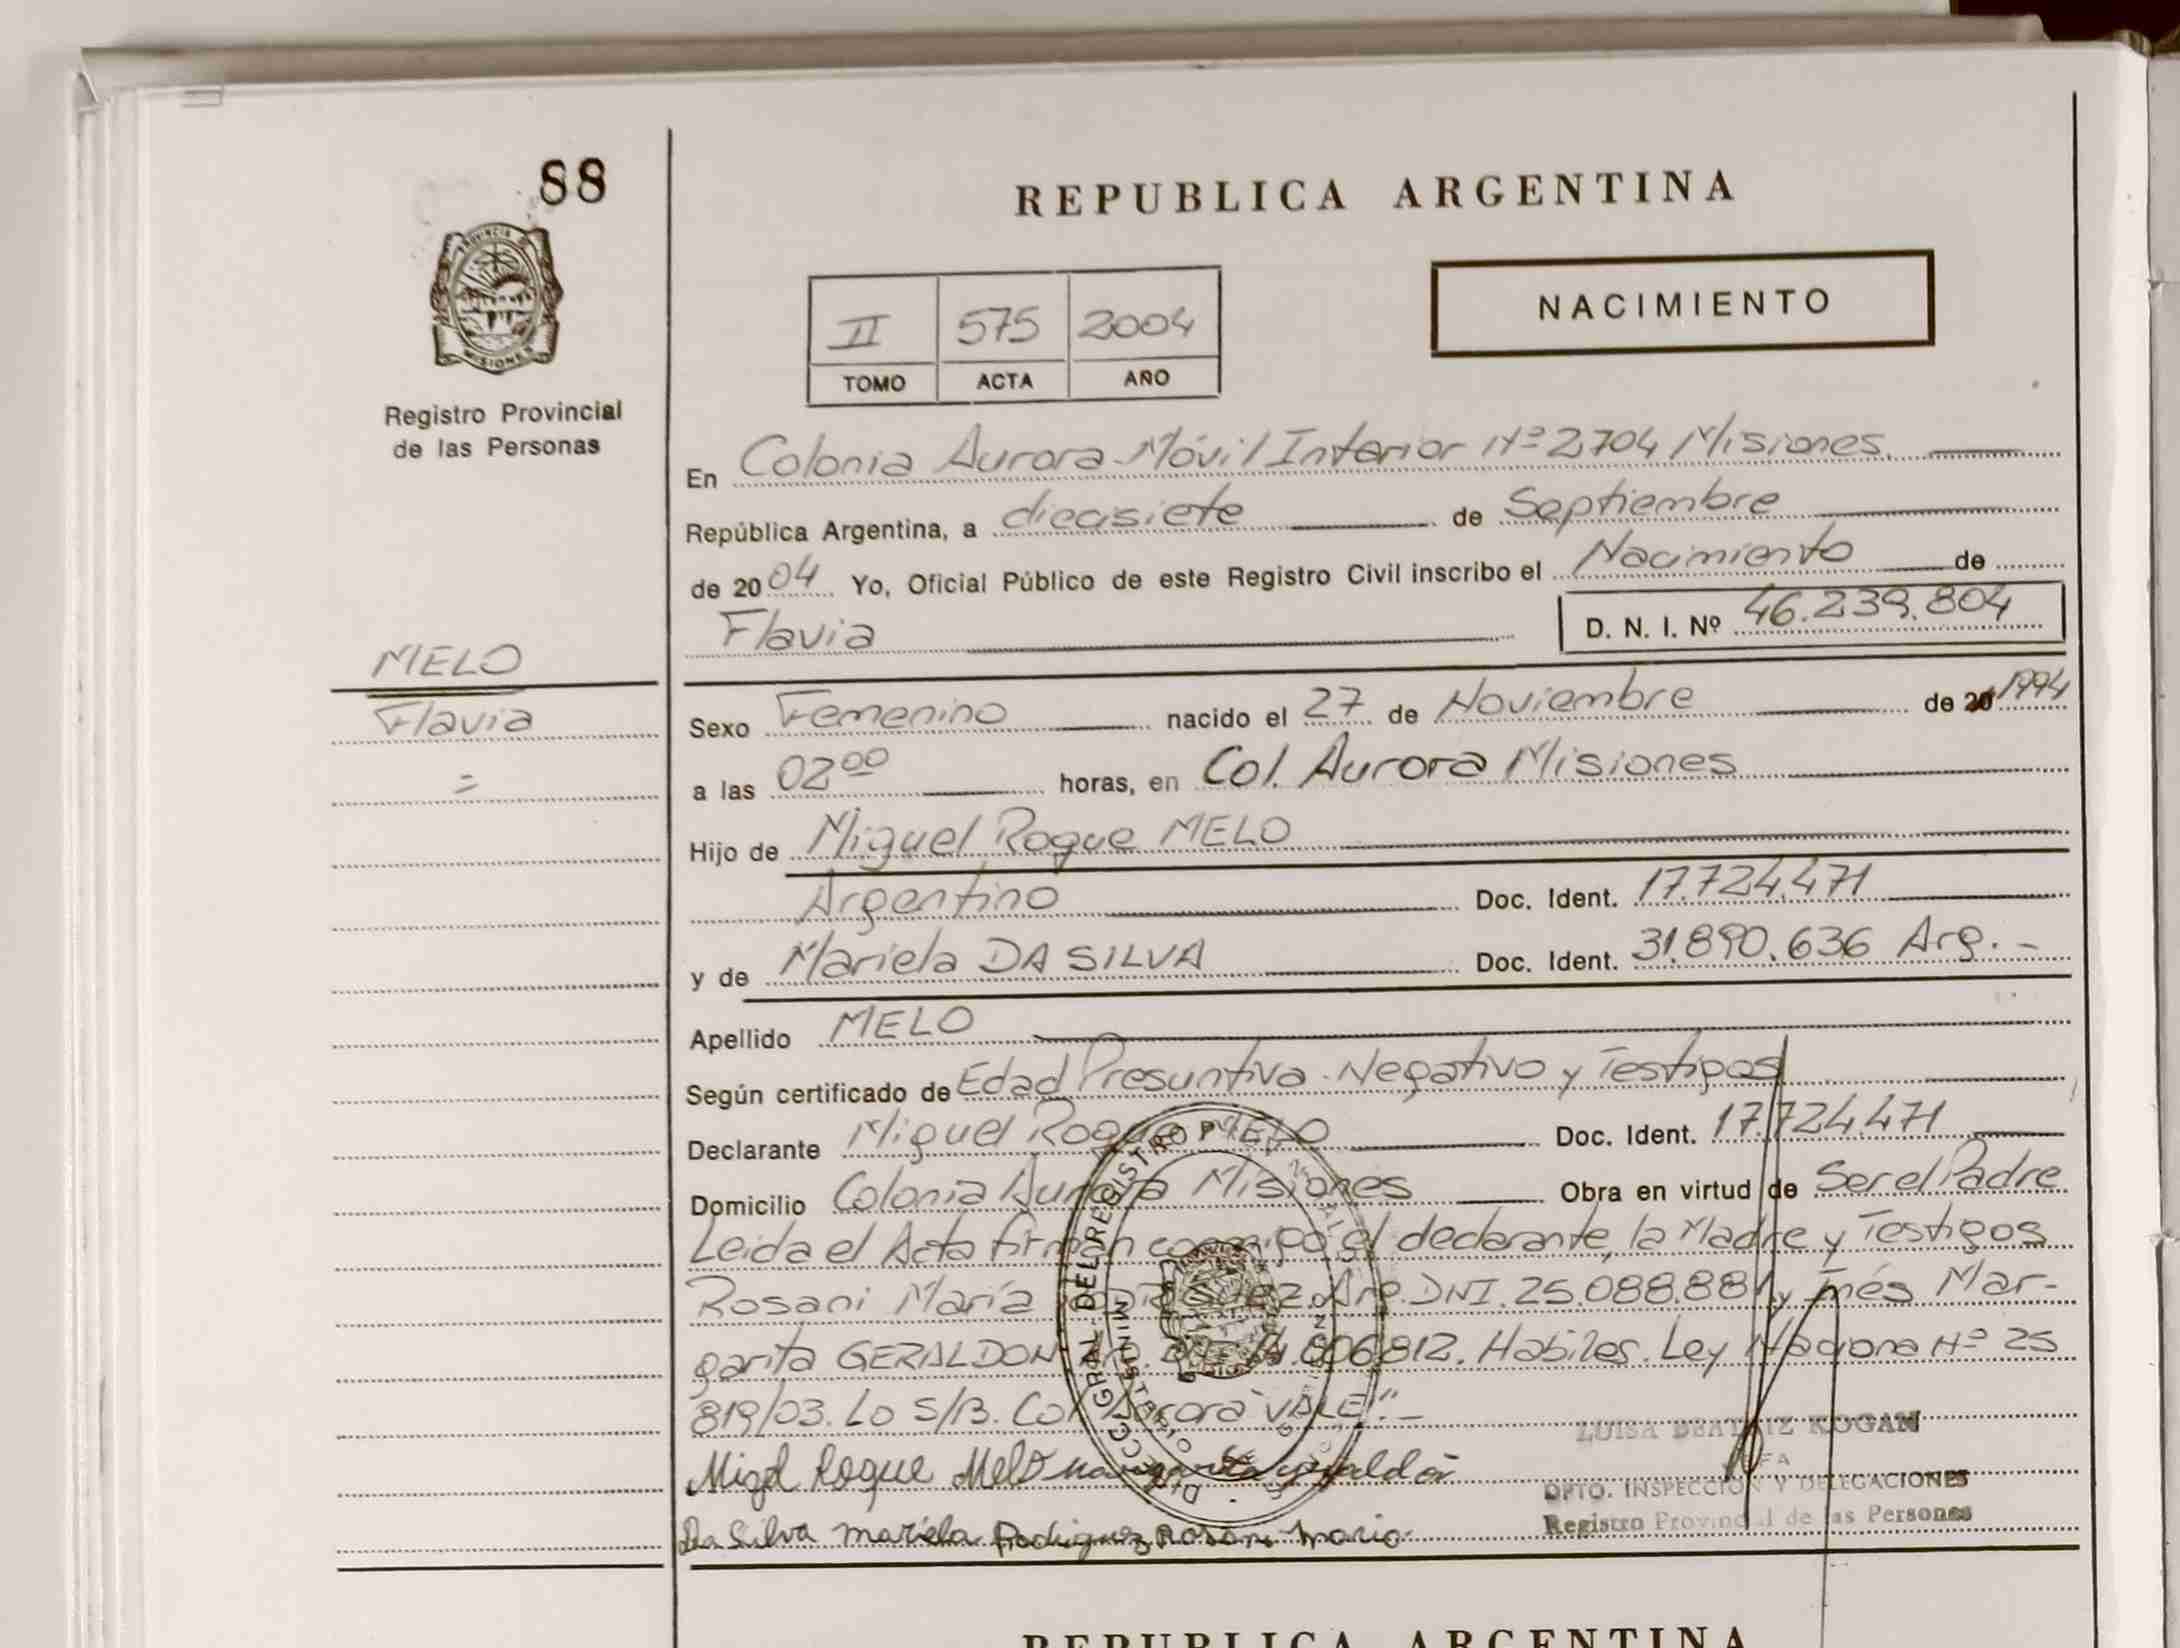 88
REPUBLICA ARGENTINA
PROVINCIA D
MISIONES
NACIMIENTO
II 575 2004
TOMO ACTA AÑO
Registro Provincial
de las Personas
En Colonia Aurora Móvil Interior Nº 2,704 Misiones.
República Argentina, a diecisiete de Septiembre
de 2004 Yo, Oficial Público de este Registro Civil inscribo el Nacimiento de
Flavia D. N. I. Nº 46.239.804
MELO
Flavia
=
Sexo Femenino nacido el 27 de Noviembre de 20 1994
a las 02⁰⁰ horas, en Col. Aurora Misiones
Hijo de Miguel Roque MELO
Argentino Doc. Ident. 17.724.471
y de Mariela DA SILVA Doc. Ident. 31.890.636 Arg. -
Apellido MELO
Según certificado de Edad Presuntiva - Negativo y Testigos
Declarante Miguel Roque MELO Doc. Ident. 17.724.471
Domicilio Colonia Aurora Misiones Obra en virtud de Ser el Padre
Leida el Acta firman conmigo el declarante, la Madre y Testigos
Rosani María Arg. DNI. 25.088.881 y Inés Mar-
garita GERALDON 806812. Habiles. Ley Naciona Nº 25
819/03. Lo S/B. Col. Aurora "VALE". -
Migel Roque Melo margarita geraldon
Da Silva mariela Rodriguez Rosani Maria
DIRECC. GRAL. DEL REGISTRO
LUISA BEATRIZ KOGAN
JEFA
DPTO. INSPECCION Y DELEGACIONES
Registro Provincial de las Personas
REPUBLICA ARGENTINA